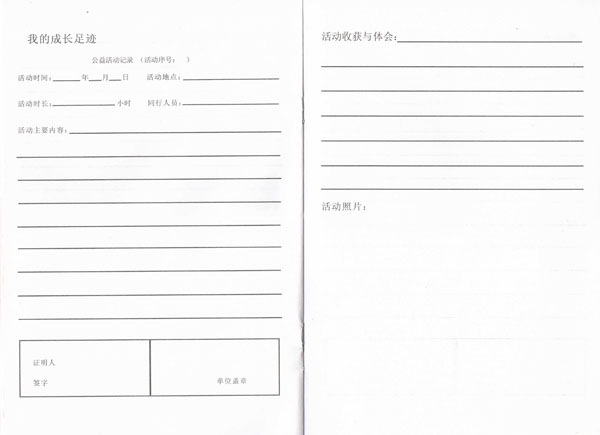 我的成长足迹
公益活动记录 （活动序号： ）
活动时间：______年___月___日 活动地点：____________
活动时长：____________小时 同行人员：____________
活动主要内容：____________
证明人
签字
单位盖章
活动收获与体会：____________
活动照片：